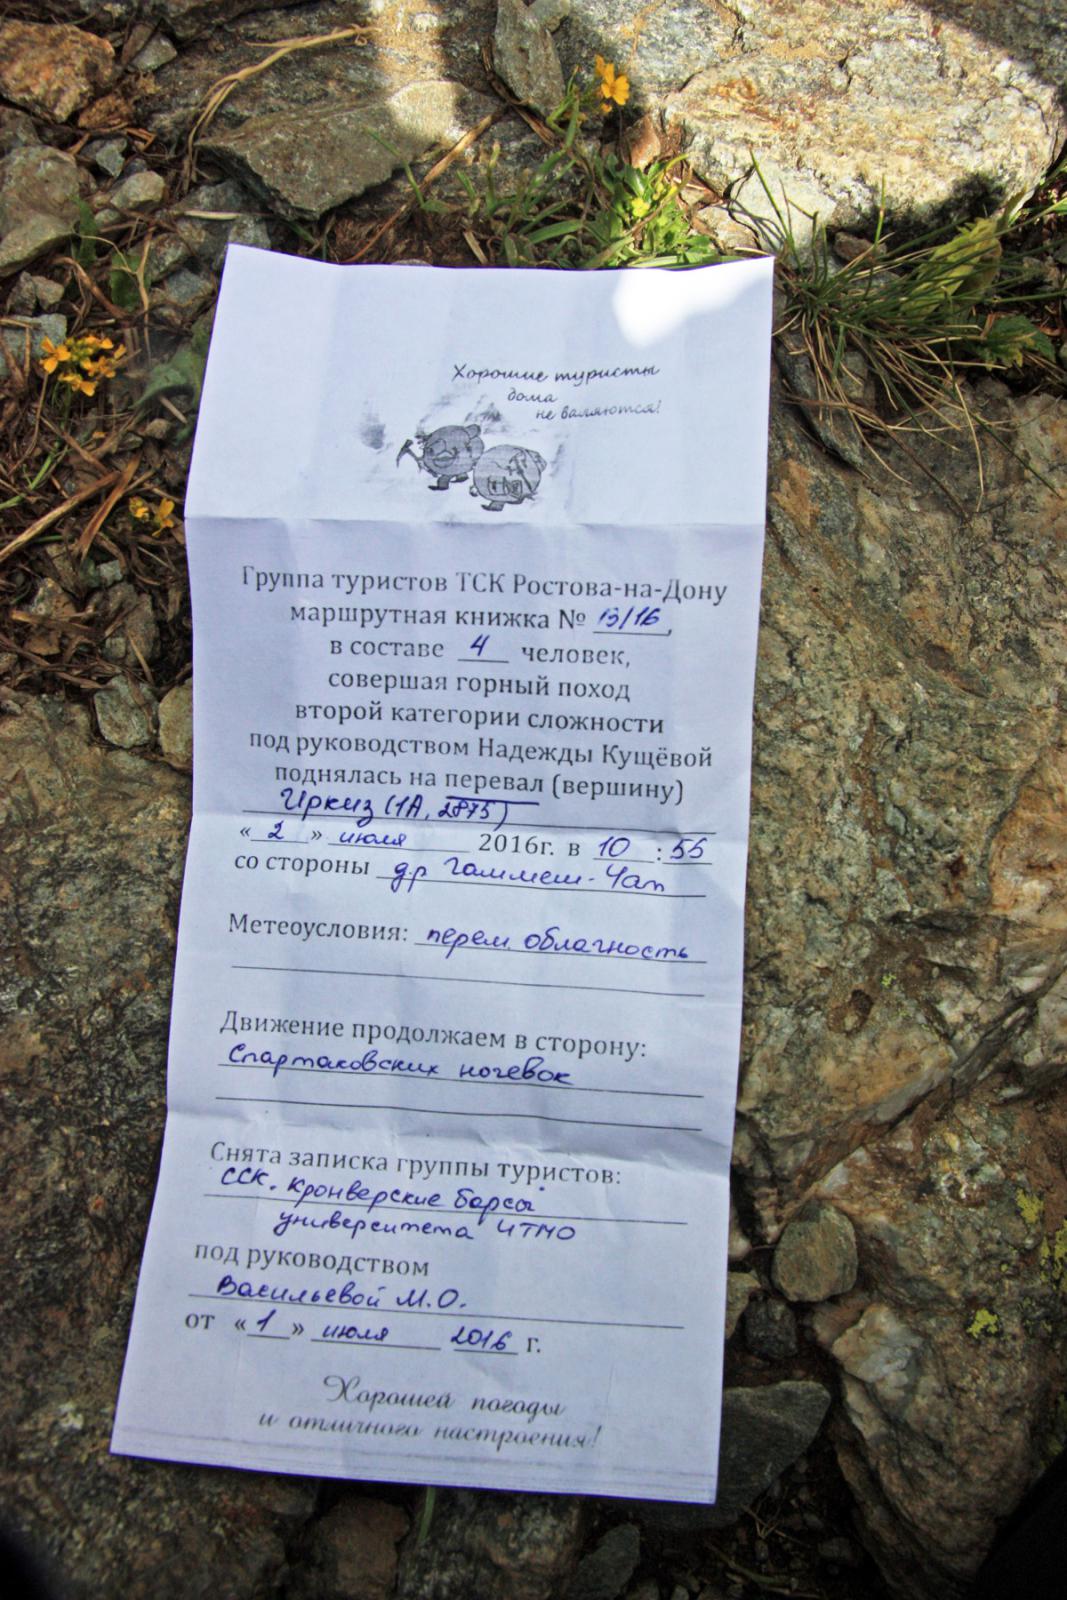 Хорошие туристы
дома
не валяются!
Группа туристов ТСК Ростова-на-Дону
маршрутная книжка № 13/16,
в составе 4 человек,
совершая горный поход
второй категории сложности
под руководством Надежды Кущёвой
поднялась на перевал (вершину)
Иркиз (1А, 2875)
« 2 » июля 2016г. в 10 : 55
со стороны др Гаммеш-Чат
Метеоусловия: перем. облачность
Движение продолжаем в сторону:
Спартаковских ночевок
Снята записка группы туристов:
ССК. Кронверские барсы
университета ИТМО
под руководством
Васильевой М.О.
от « 1 » июля 2016 г.
Хорошей погоды
и отличного настроения!